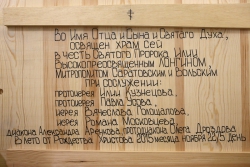 Во Имя Отца и Сына и Святаго Духа,
освящен храм сей
в честь Святого Пророка Илии
Высокопреосвященным Лонгином,
Митрополитом Саратовским и Вольским
при сослужении:
протоиерея Илии Кузнецова,
протоиерея Павла
иерея Вячеслава
иерея Романа
диакона Александра протодиакона Олега Дроздова
в лето от Рождества Христова 2015 месяца ноября 22/5 день